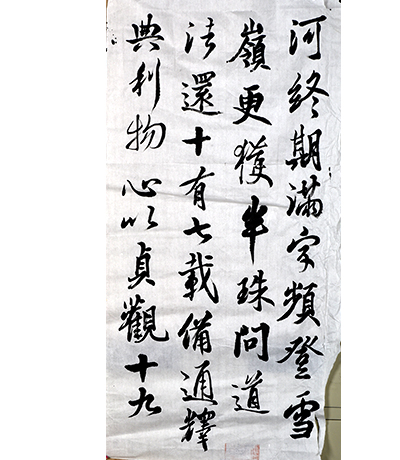 河终期满字頻登雪
嶺更獲半珠問道
法還十有七載備通釋
典利物心以貞觀十九